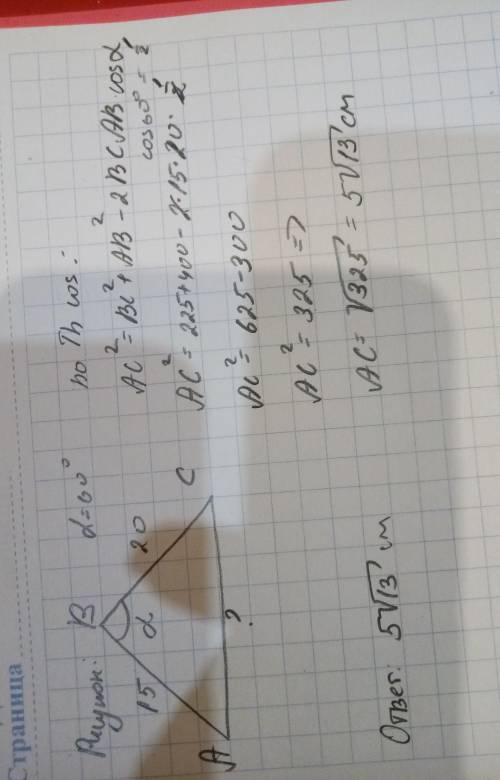 Страница
Рисунок:
α=60°
B
15
α
20
A
?
C
по Th cos:
AC² = BC² + AB² - 2BC·AB·cosα
cos60° = 1/2
AC² = 225+400 - 2·15·20·1/2
AC² = 625-300
AC² = 325 =>
AC = √325 = 5√13 см
Ответ: 5√13 см